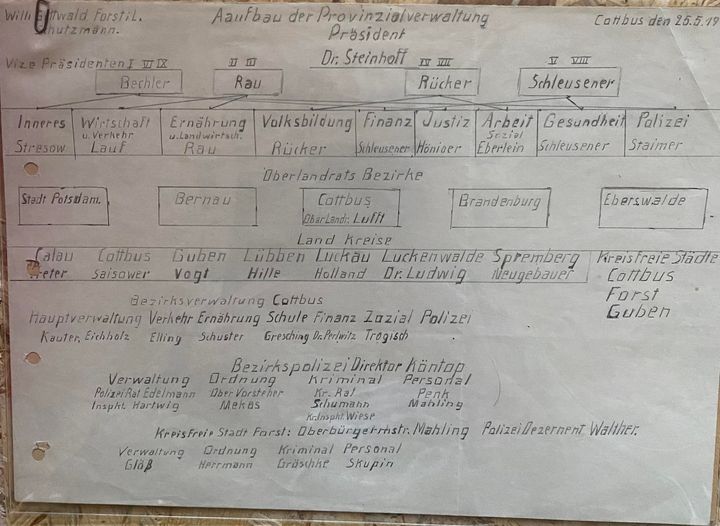 Willi Gottwald Forst i.L. Aaufbau der Provinzialverwaltung Cottbus den 25.5.19
Schutzmann. Präsident
Vize Präsidenten I VI IX II III Dr. Steinhoff IV VIII V VIII
Bechler Rau Rücker Schleusener
Inneres Wirtschaft Ernährung Volksbildung Finanz Justiz Arbeit Gesundheit Polizei
u. Verkehr u. Landwirtsch. Sozial
Stresow Lauf Rau Rücker Schleusener Hönioer Eberlein Schleusener Staimer
Oberlandrats Bezirke
Stadt Potsdam. Bernau Cottbus Brandenburg Eberswalde
Oberlandr. Lufft
Land Kreise
Calau Cottbus Guben Lübben Luckau Luckenwalde Spremberg Kreisfreie Städte
Saisower Vogt Hille Holland Dr. Ludwig Neugebauer Cottbus
Forst
Guben
Bezirksverwaltung Cottbus
Hauptverwaltung Verkehr Ernährung Schule Finanz Zozial Polizei
Kauter, Eichholz Elling Schuster Gresching Dr. Perlwitz Trogisch
Bezirkspolizei Direktor Köntop
Verwaltung Ordnung Kriminal Personal
Polizei Rat Edelmann Ober Vorsteher Kr. Rat Penk
Inspkt. Hartwig Mekas Schumann Mahling
Kr. Inspkt. Wiese
Kreisfreie Stadt Forst: Oberbürgermstr. Mahling Polizei Dezernent Walther.
Verwaltung Ordnung Kriminal Personal
Gläß Herrmann Gräschke Skupin